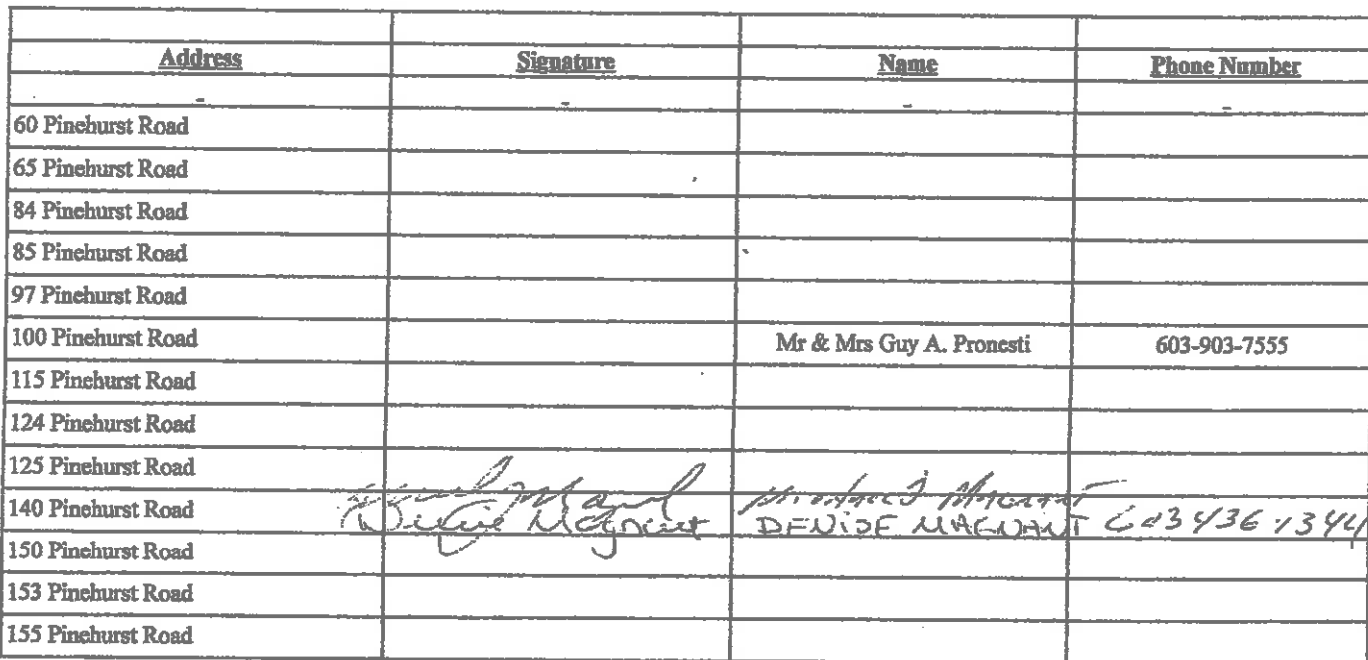 Address Signature Name Phone Number
- - - -
60 Pinehurst Road
65 Pinehurst Road
84 Pinehurst Road
85 Pinehurst Road
97 Pinehurst Road
100 Pinehurst Road Mr & Mrs Guy A. Pronesti 603-903-7555
115 Pinehurst Road
124 Pinehurst Road
125 Pinehurst Road
Magnant
140 Pinehurst Road Denise Magnant DENISE MAGNANT 603 436 1344
150 Pinehurst Road
153 Pinehurst Road
155 Pinehurst Road